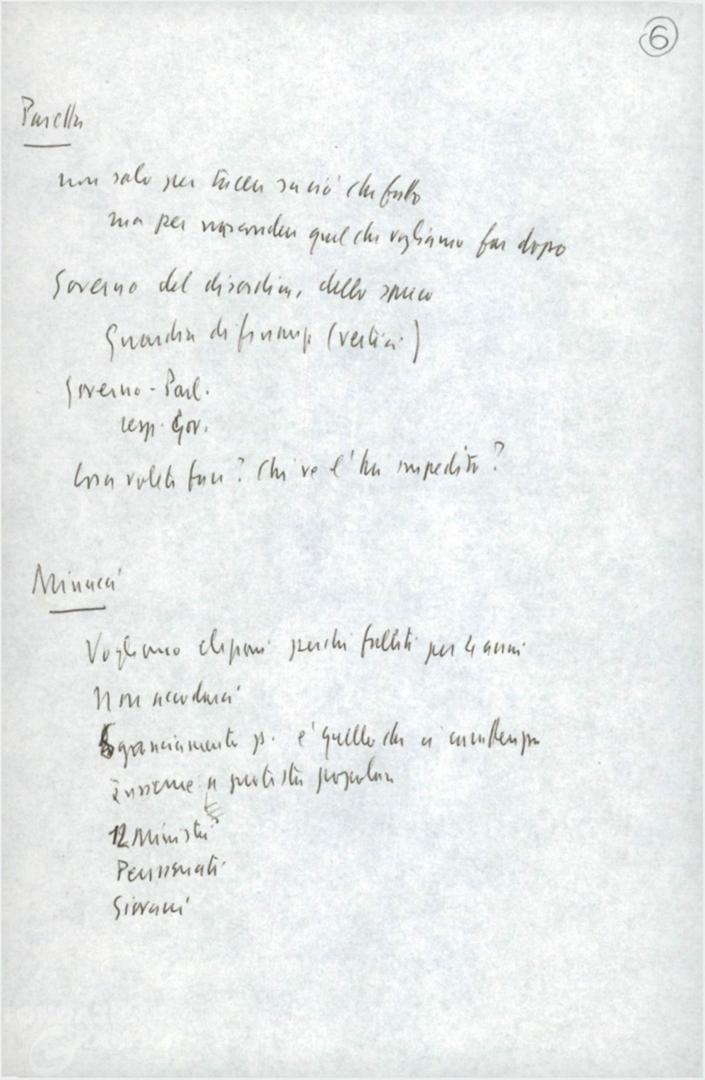 6
Parella
non solo per tacere su ciò che fatto
ma per nascondere quel che vogliamo far dopo
Governo del disordine, dello spreco
Guardia di finanza (vertici)
Governo - Parl.
resp. Gov.
Cosa volete fare? Chi ve l'ha impedito?
Minucci
Vogliamo elezioni perché falliti per 4 anni
Non accodarci
Sganciamento è quello che ci
Insieme a protesta popolare
12 Ministri
Pensionati
Giovani